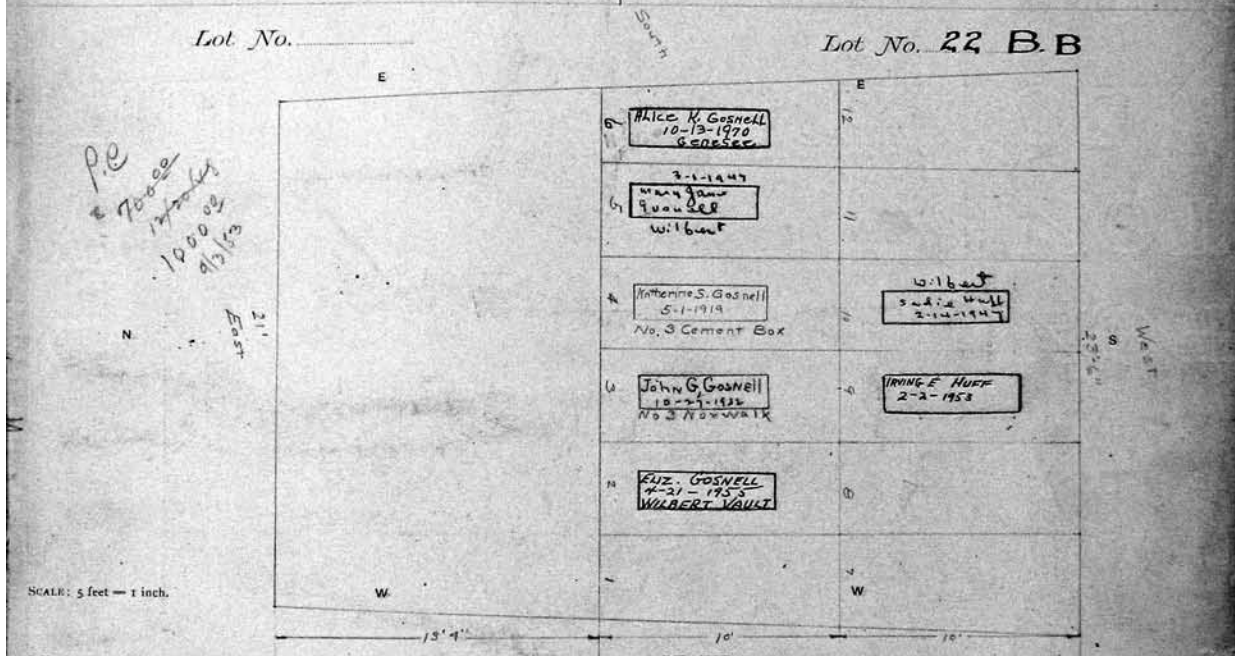 South
Lot No.
Lot No. 22 B.B
E
E
P.C
700 00
12/20/48
1000 00
9/3/53
6
Alice K. Gosnell
10-13-1970
Genesee
12
5
3-1-1947
Mary Jane
Wilbert
11
4
Katherine S. Gosnell
5-1-1919
No. 3 Cement Box
10
Wilbert
Sadie Huff
2-14-1947
N
21'
East
S
West
23'6"
3
John G. Gosnell
10-27-1922
No 3 Norwalk
9
IRVING E HUFF
2-2-1953
2
ELIZ. GOSNELL
4-21-1955
WILBERT VAULT
8
1
7
W
W
SCALE: 5 feet = 1 inch.
13'4"
10'
10'